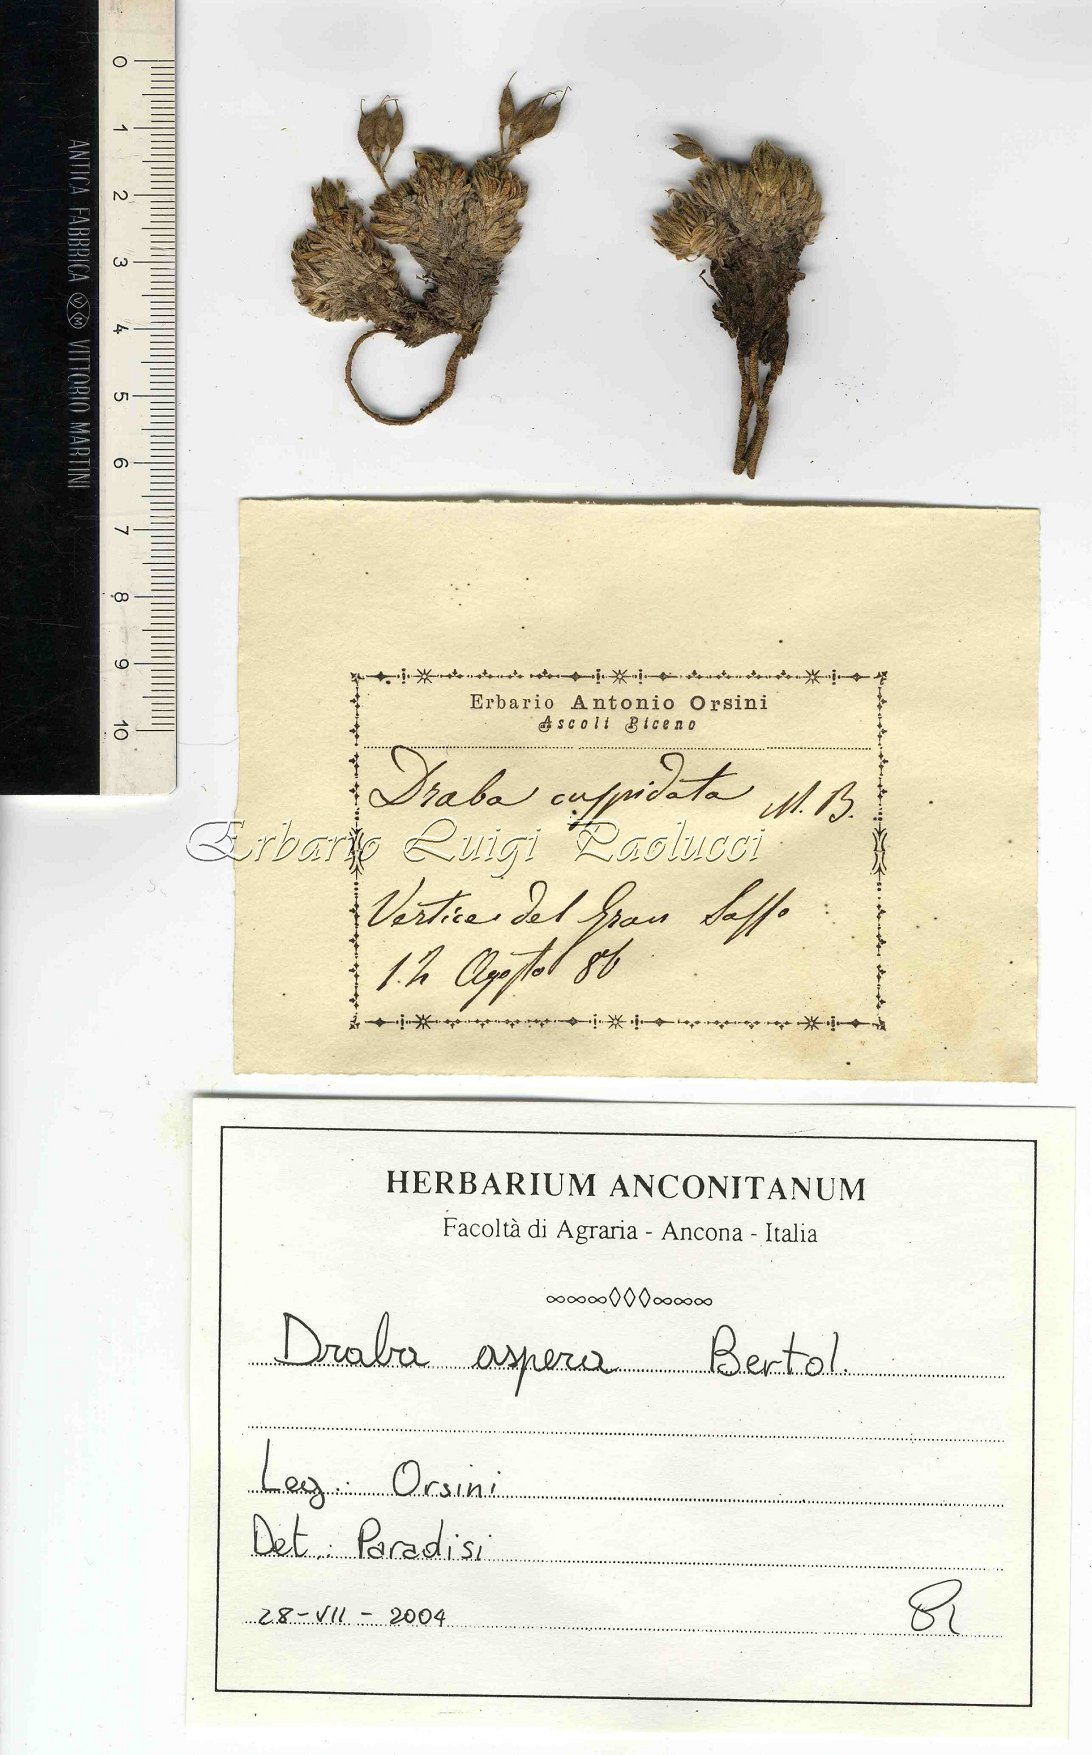 0
1
2
3
4
5
6
7
8
9
10
ANTICA FABBRICA VM VITTORIO MARTINI
Erbario Antonio Orsini
Ascoli Piceno
Draba cuspidata M. B.
Erbario Luigi Paolucci
Vertice del Gran Sasso
12 Agosto 86
HERBARIUM ANCONITANUM
Facoltà di Agraria - Ancona - Italia
Draba aspera Bertol.
Leg.: Orsini
Det.: Paradisi
28-VII-2004